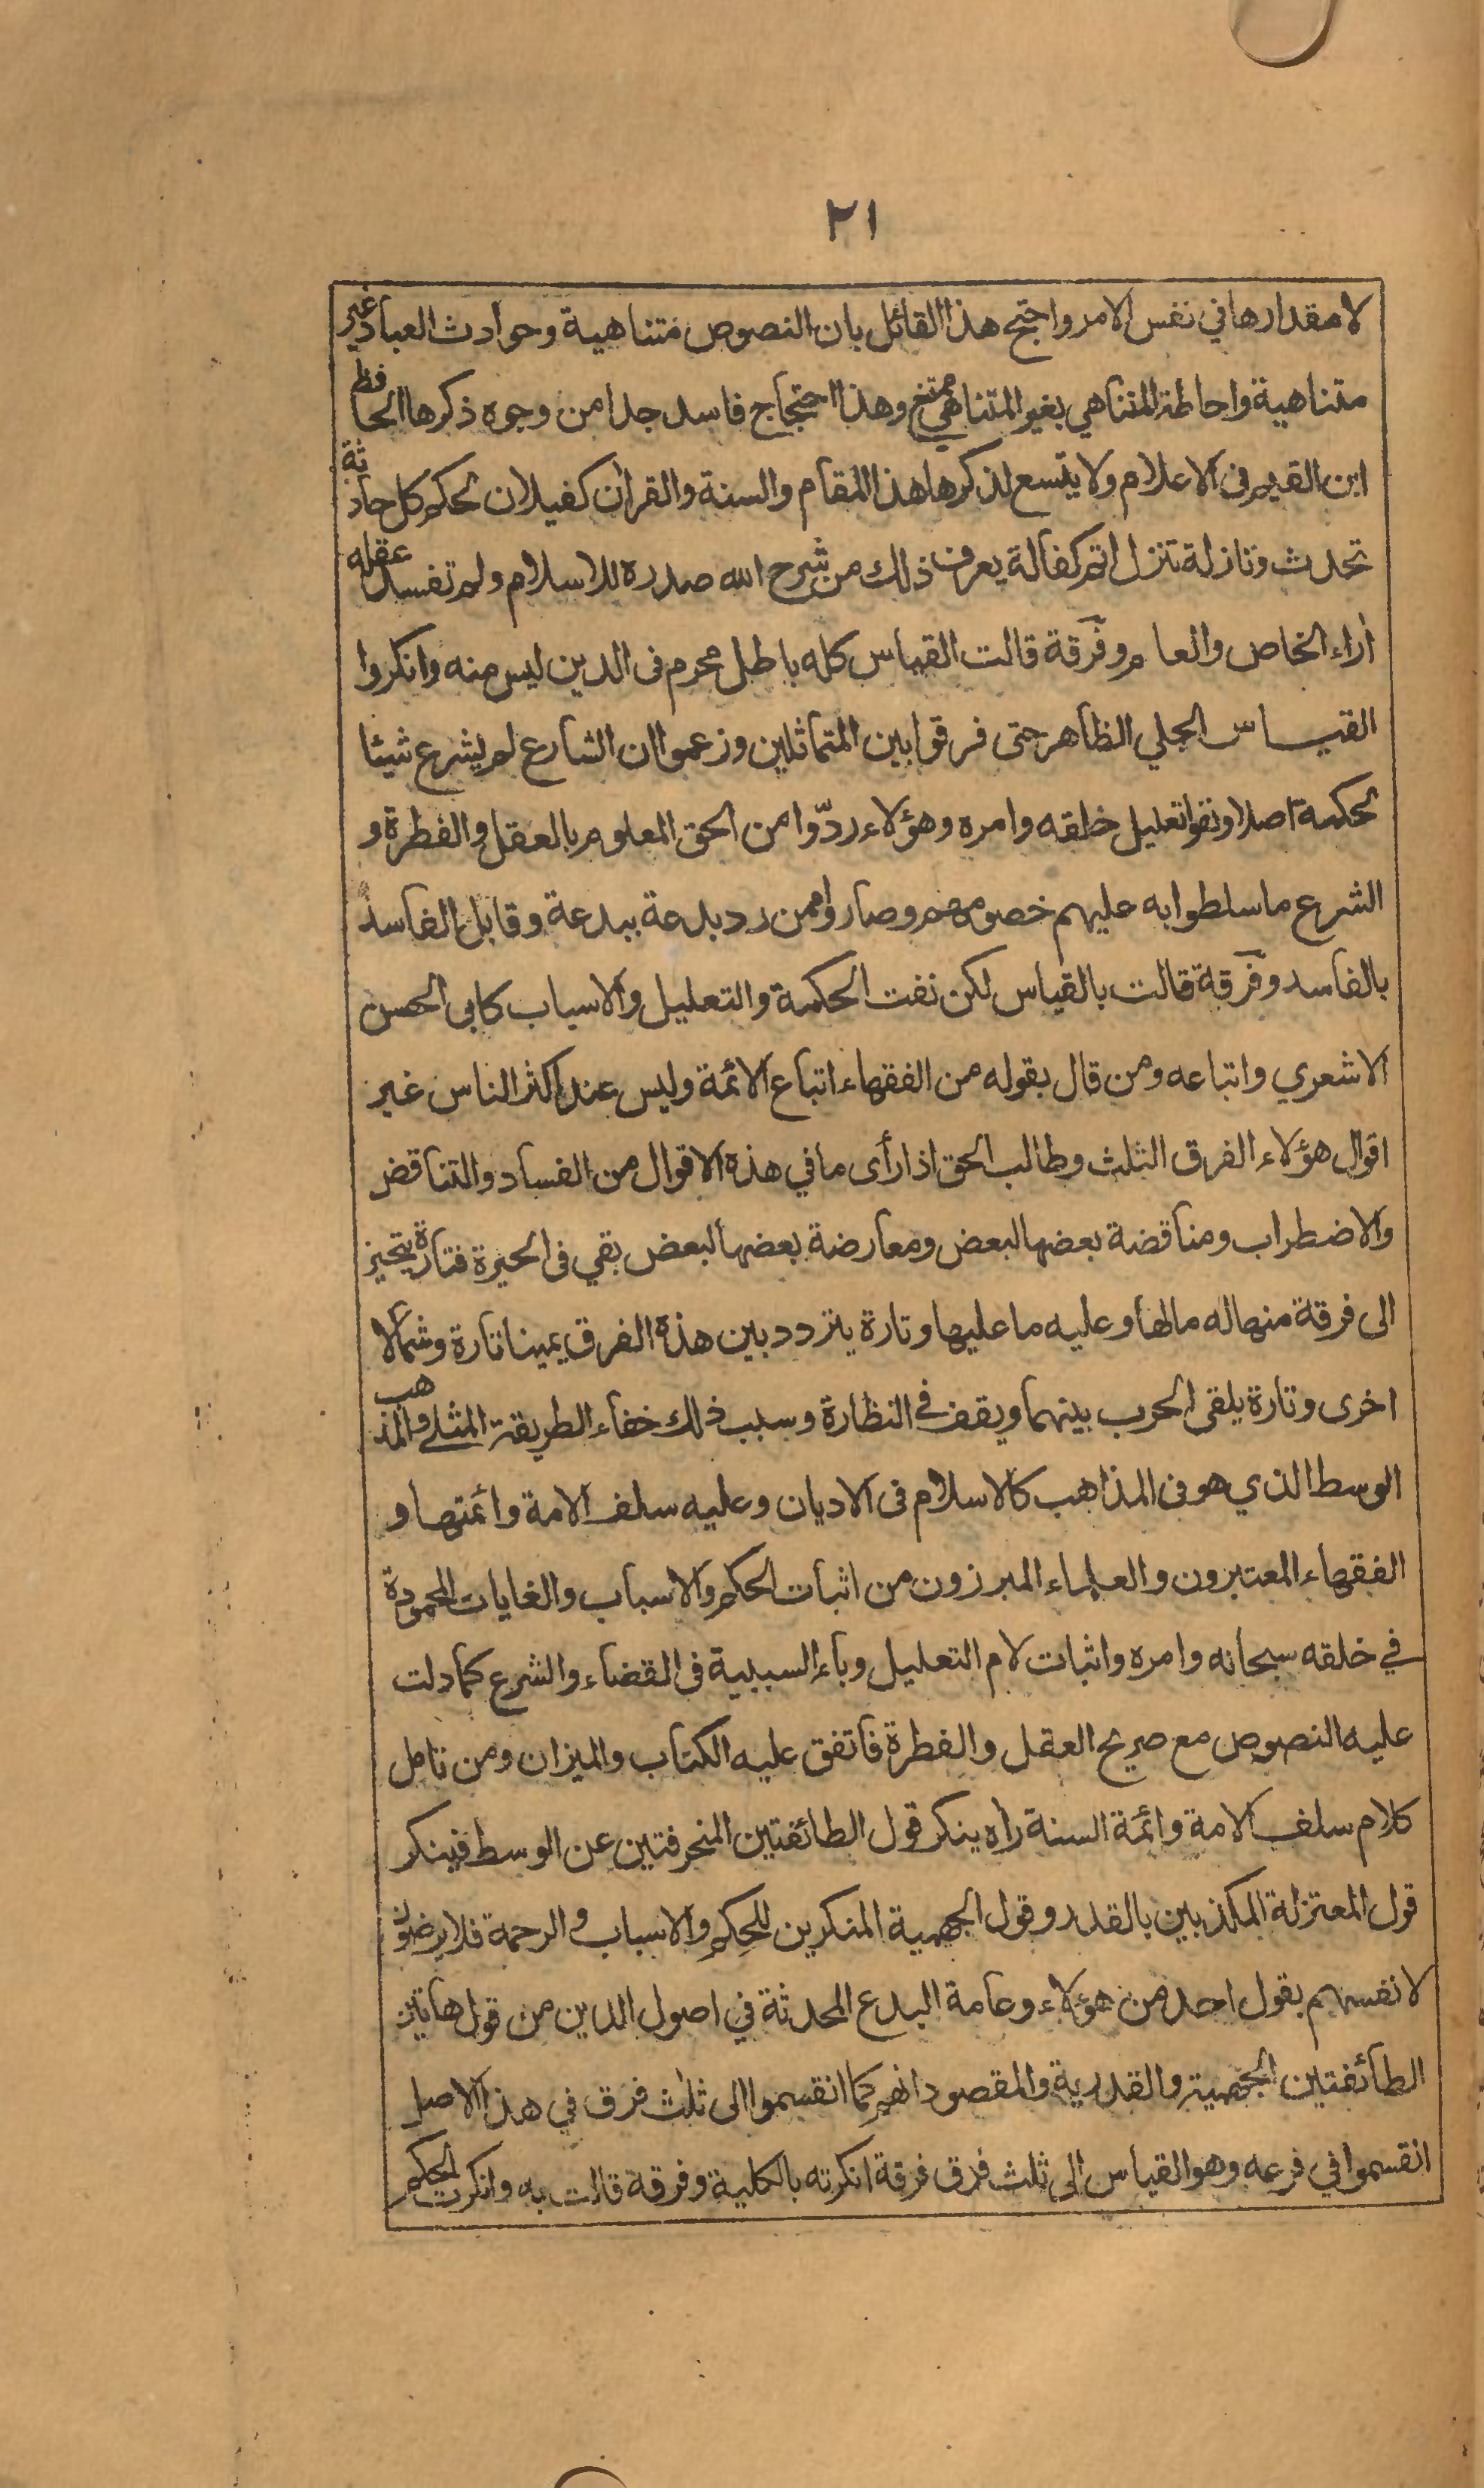 ٢١
لا مقدارها في نفس الامر واحتج هذا القائل بان النصوص متناهية وحوادث العباد غير
متناهية واحاطة المتناهي بغير المتناهي ممتنع وهذا احتجاج فاسد جدا من وجوه ذكرها الحافظ
ابن القيم فى الاعلام ولا يتسع لذكرها هذا المقام والسنة والقرآن كفيلان بحكم كل حادثة
تحدث ونازلة تنزل اتم كفالة يعرف ذلك من شرح الله صدره للاسلام ولم تفسد عقله
آراء الخاص والعام وفرقة قالت القياس كله باطل محرم فى الدين ليس منه وانكروا
القياس الجلي الظاهر حتى فرقوا بين المتماثلين وزعموا ان الشارع لم يشرع شيئا
لحكمة اصلا ونفوا تعليل خلقه وامره وهؤلاء ردّوا من الحق المعلوم بالعقل والفطرة و
الشرع ما سلطوا به عليهم خصومهم وصاروا ممن رد بدعة ببدعة وقابل الفاسد
بالفاسد وفرقة قالت بالقياس لكن نفت الحكمة والتعليل والاسباب كابى الحسن
الاشعري واتباعه ومن قال بقوله من الفقهاء اتباع الائمة وليس عند اكثر الناس غير
اقوال هؤلاء الفرق الثلث وطالب الحق اذا رأى ما في هذه الاقوال من الفساد والتناقض
والاضطراب ومناقضة بعضها لبعض ومعارضة بعضها لبعض بقي فى الحيرة فتارة يتحيز
الى فرقة منها له مالها وعليه ما عليها وتارة يتردد بين هذه الفرق يمينا تارة وشمالا
اخرى وتارة يلقى الحرب بينهما ويقف في النظارة وسبب ذلك خفاء الطريقة المثلى والمذهب
الوسط الذي هو فى المذاهب كالاسلام فى الاديان وعليه سلف الامة وائمتها و
الفقهاء المعتبرون والعلماء المبرزون من اثبات الحكم والاسباب والغايات المحمودة
في خلقه سبحانه وامره واثبات لام التعليل وباء السببية فى القضاء والشرع كما دلت
عليه النصوص مع صريح العقل والفطرة فاتفق عليه الكتاب والميزان ومن تامل
كلام سلف الامة وائمة السنة رآه ينكر قول الطائفتين المنحرفتين عن الوسط فينكر
قول المعتزلة المكذبين بالقدر وقول الجهمية المنكرين للحِكم والاسباب والرحمة فلا يرضون
لانفسهم بقول احد من هؤلاء وعامة البدع المحدثة في اصول الدين من قول هاتين
الطائفتين الجهمية والقدرية والمقصود انهم كما انقسموا الى ثلث فرق في هذا الاصل
انقسموا في فرعه وهو القياس الى ثلث فرق فرقة انكرته بالكلية وفرقة قالت به وانكرت الحكم